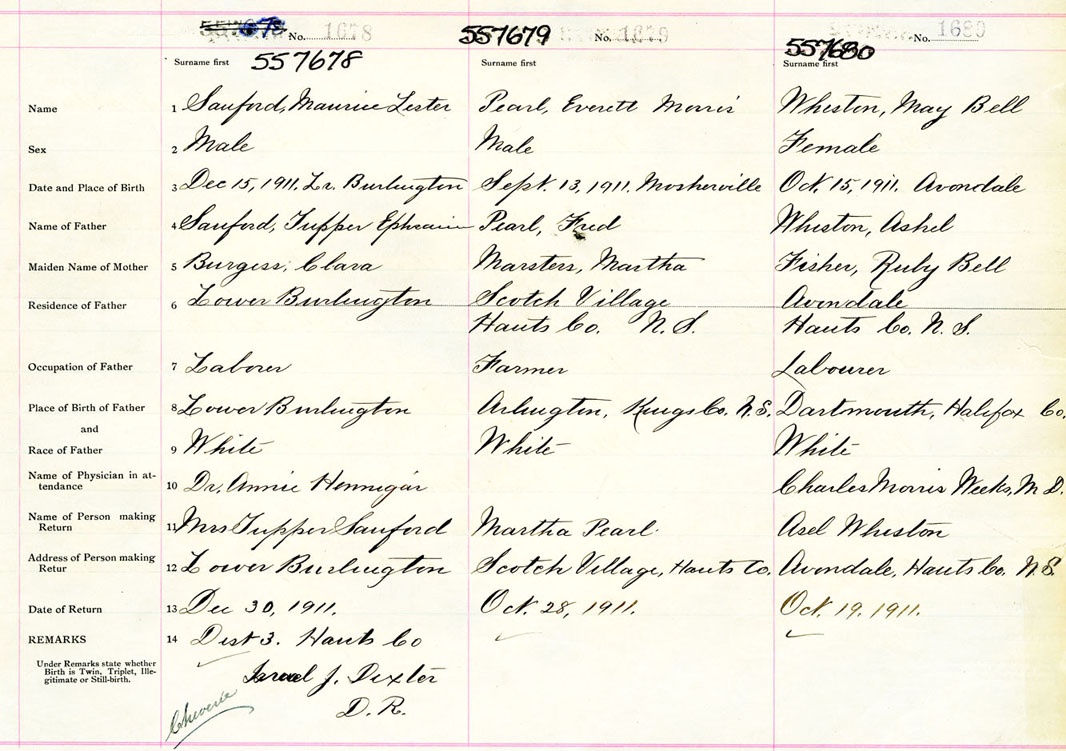 No. 1678 557679 No. 1679 No. 1680
Surname first 557678 Surname first 557680 Surname first
Name 1 Sanford, Maurice Lester Pearl, Everett Morris Whiston, May Bell
Sex 2 Male Male Female
Date and Place of Birth 3 Dec 15, 1911. Lr. Burlington Sept. 13, 1911. Mosherville Oct. 15, 1911. Avondale
Name of Father 4 Sanford, Tupper Ephraim Pearl, Fred Whiston, Ashel
Maiden Name of Mother 5 Burgess, Clara Marsters, Martha Fisher, Ruby Bell
Residence of Father 6 Lower Burlington Scotch Village Avondale
Hants Co. N. S. Hants Co. N. S.
Occupation of Father 7 Laborer Farmer Labourer
Place of Birth of Father 8 Lower Burlington Arlington, Kings Co. N. S. Dartmouth, Halifax Co.
and
Race of Father 9 White White White
Name of Physician in at-
tendance 10 Dr. Annie Hennigar Charles Morris Weeks, M. D.
Name of Person making
Return 11 Mrs Tupper Sanford Martha Pearl. Asel Whiston
Address of Person making
Retur 12 Lower Burlington Scotch Village, Hants Co. Avondale, Hants Co. N. S.
Date of Return 13 Dec 30, 1911. Oct. 28, 1911. Oct. 19. 1911.
REMARKS 14 Dist 3. Hants Co
Under Remarks state whether
Birth is Twin, Triplet, Ille-
gitimate or Still-birth.
Israel J. Dexter
D. R.
Cheverie